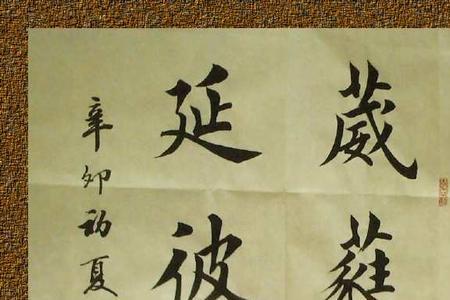 葳蕤
延彼
辛卯初夏